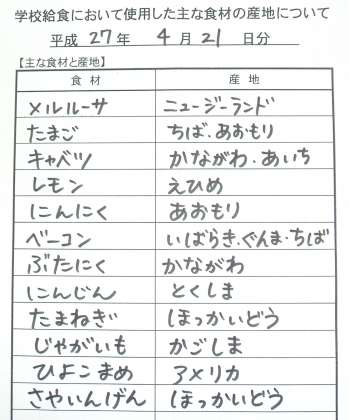 学校給食において使用した主な食材の産地について
平成 27 年 4 月 21 日分
【主な食材と産地】
食材 産地
メルルーサ ニュージーランド
たまご ちば、あおもり
キャベツ かながわ、あいち
レモン えひめ
にんにく あおもり
ベーコン いばらき、ぐんま・ちば
ぶたにく かながわ
にんじん とくしま
たまねぎ ほっかいどう
じゃがいも かごしま
ひよこまめ アメリカ
さやいんげん ほっかいどう